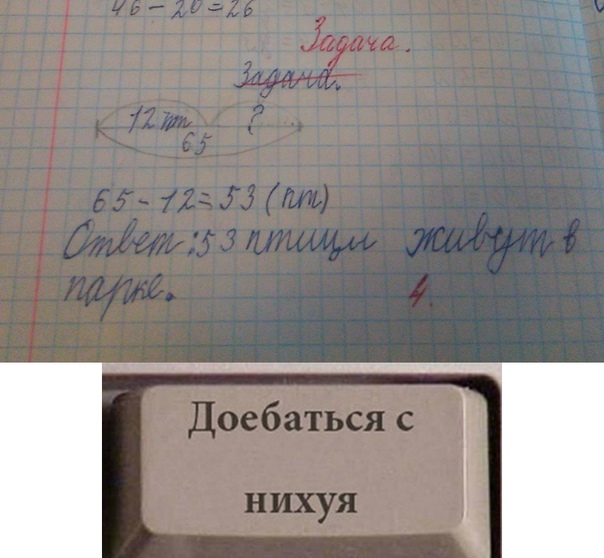 46 - 20 = 26
Задача.
Задача.
12 пт ?
65
65 - 12 = 53 (пт)
Ответ: 53 птицы живут в
парке.
4.
Доебаться с
нихуя